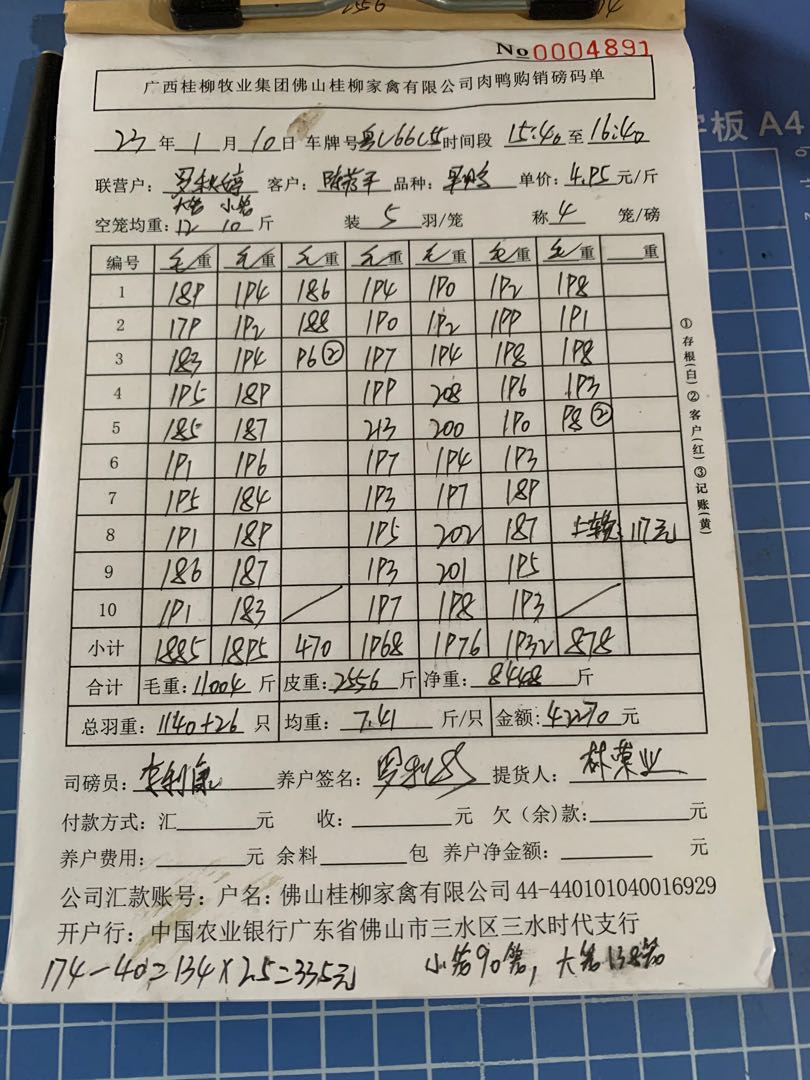 No 0004891
广西桂柳牧业集团佛山桂柳家禽有限公司肉鸭购销磅码单
23 年 1 月 10 日 车牌号 时间段 15:40 至 16:40
联营户: 罗秋婷 客户: 品种: 单价: 4.95 元/斤
大笼 小笼
空笼均重: 12 10 斤 装 5 羽/笼 称 4 笼/磅
编号 毛重 毛重 毛重 毛重 毛重 毛重 毛重 重
1 189 194 186 194 190 192 198
2 179 192 188 190 192 199 191
3 183 194 96② 197 194 198 198
4 195 189 199 208 196 193
5 185 187 213 200 190 98②
6 191 196 197 194 193
7 195 184 193 197 189
8 191 189 195 202 187 上车费: 117元
9 186 187 193 201 195
10 191 183 197 198 193
小计 1885 1895 470 1968 1976 1932 878
合计 毛重: 11004 斤 皮重: 2556 斤 净重: 8448 斤
总羽重: 1140+26 只 均重: 7.41 斤/只 金额: 42270 元
司磅员: 养户签名: 提货人: 林荣业
付款方式: 汇 元 收: 元 欠（余）款: 元
养户费用: 元 余料 包 养户净金额: 元
公司汇款账号: 户名: 佛山桂柳家禽有限公司 44-440101040016929
开户行: 中国农业银行广东省佛山市三水区三水时代支行
174-40=134×2.5=335元 小笼90笼, 大笼138笼
①存根(白)②客户(红)③记账(黄)
板 A4